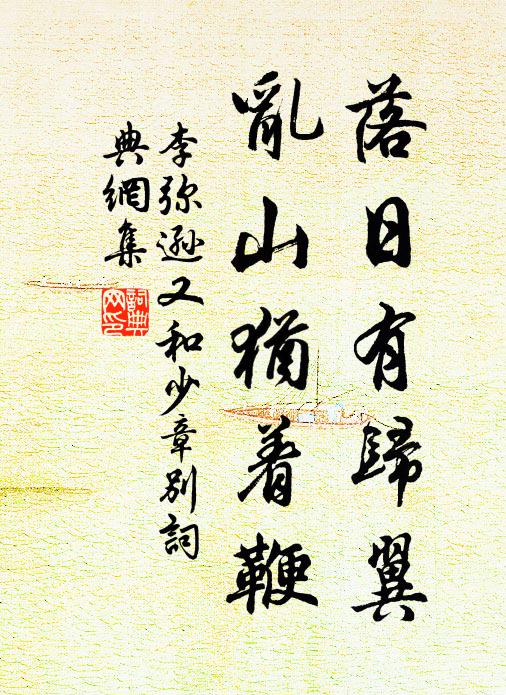 落日有歸翼
亂山猶着鞭
李弥遜又和少章別詞
典網集
詞典网印